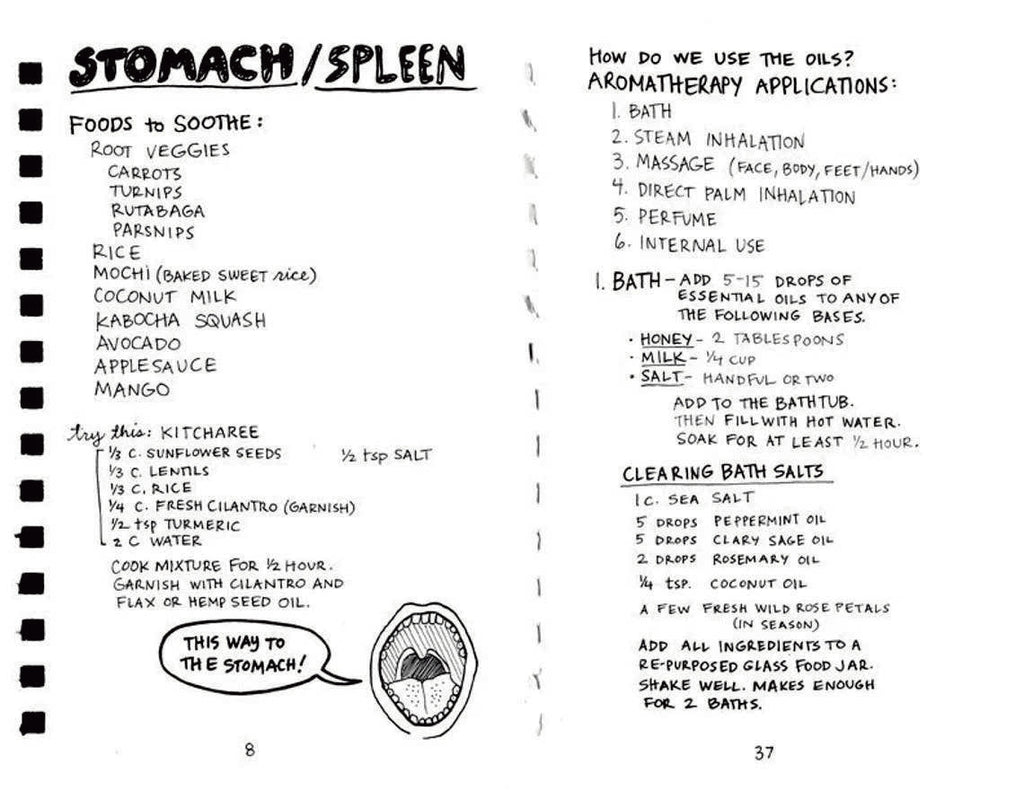 STOMACH/SPLEEN
FOODS to SOOTHE:
ROOT VEGGIES
CARROTS
TURNIPS
RUTABAGA
PARSNIPS
RICE
MOCHI (BAKED SWEET rice)
COCONUT MILK
KABOCHA SQUASH
AVOCADO
APPLESAUCE
MANGO
try this: KITCHAREE
1/3 C. SUNFLOWER SEEDS 1/2 tsp SALT
1/3 C. LENTILS
1/3 C. RICE
1/4 C. FRESH CILANTRO (GARNISH)
1/2 tsp TURMERIC
2 C WATER
COOK MIXTURE FOR 1/2 HOUR.
GARNISH WITH CILANTRO AND
FLAX OR HEMP SEED OIL.
THIS WAY TO
THE STOMACH!
8
HOW DO WE USE THE OILS?
AROMATHERAPY APPLICATIONS:
1. BATH
2. STEAM INHALATION
3. MASSAGE (FACE, BODY, FEET/HANDS)
4. DIRECT PALM INHALATION
5. PERFUME
6. INTERNAL USE
1. BATH - ADD 5-15 DROPS OF
ESSENTIAL OILS TO ANY OF
THE FOLLOWING BASES.
• HONEY - 2 TABLESPOONS
• MILK - 1/4 CUP
• SALT - HANDFUL OR TWO
ADD TO THE BATHTUB.
THEN FILL WITH HOT WATER.
SOAK FOR AT LEAST 1/2 HOUR.
CLEARING BATH SALTS
1 C. SEA SALT
5 DROPS PEPPERMINT OIL
5 DROPS CLARY SAGE OIL
2 DROPS ROSEMARY OIL
1/4 tsp. COCONUT OIL
A FEW FRESH WILD ROSE PETALS
(IN SEASON)
ADD ALL INGREDIENTS TO A
RE-PURPOSED GLASS FOOD JAR.
SHAKE WELL. MAKES ENOUGH
FOR 2 BATHS.
37